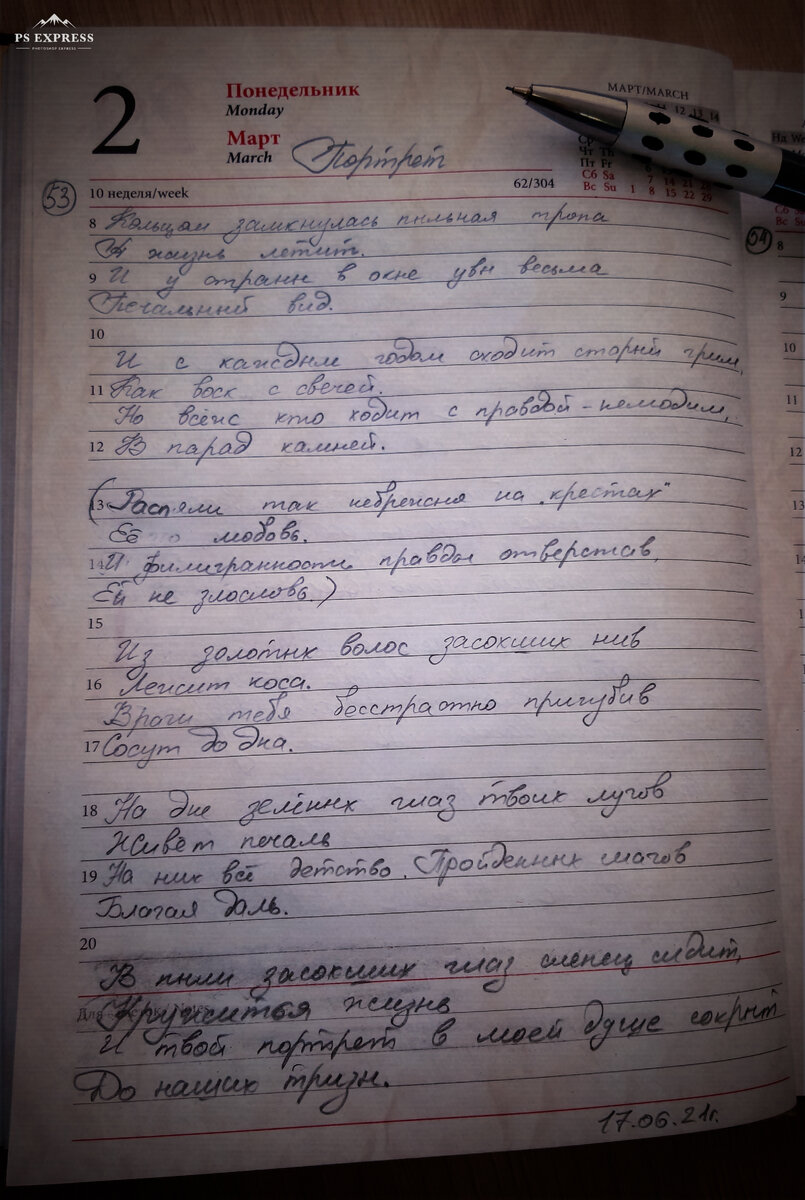 PS EXPRESS
PHOTOSHOP EXPRESS
2
Понедельник
Monday
Март
March
Портрет
МАРТ/MARCH
12 13 14
Ср
Чт Th
Пт Fr
Сб Sa 7 14 21 28
Вс Su 1 8 15 22 29
53
10 неделя/week
62/304
8 Кольцом замкнулась пыльная тропа
А жизнь летит.
9 И у страны в окне увы весьма
Печальный вид.
10
И с каждым годом сходит старый грим,
11 Как воск с свечей.
Но всёж кто ходит с правдой - немодим,
12 В парад камней.
13 (Распяли так небрежно на "крестах"
Её любовь.
14 И филигранность правды отверстав,
Ей не злословь.)
15
Из золотых волос засохших нив
16 Лежит коса.
Враги тебя бесстрастно пригубив
17 Сосут до дна.
18 На дне зелёных глаз твоих лугов
Живёт печаль
19 На них всё детство. Пройденных шагов
Благая даль.
20
В пыли засохших глаз слепец сидит,
Кружится жизнь
И твой портрет в моей душе сокрыт
До наших тризн.
17.06.21г.
54
8
9
10
11
12
13
14